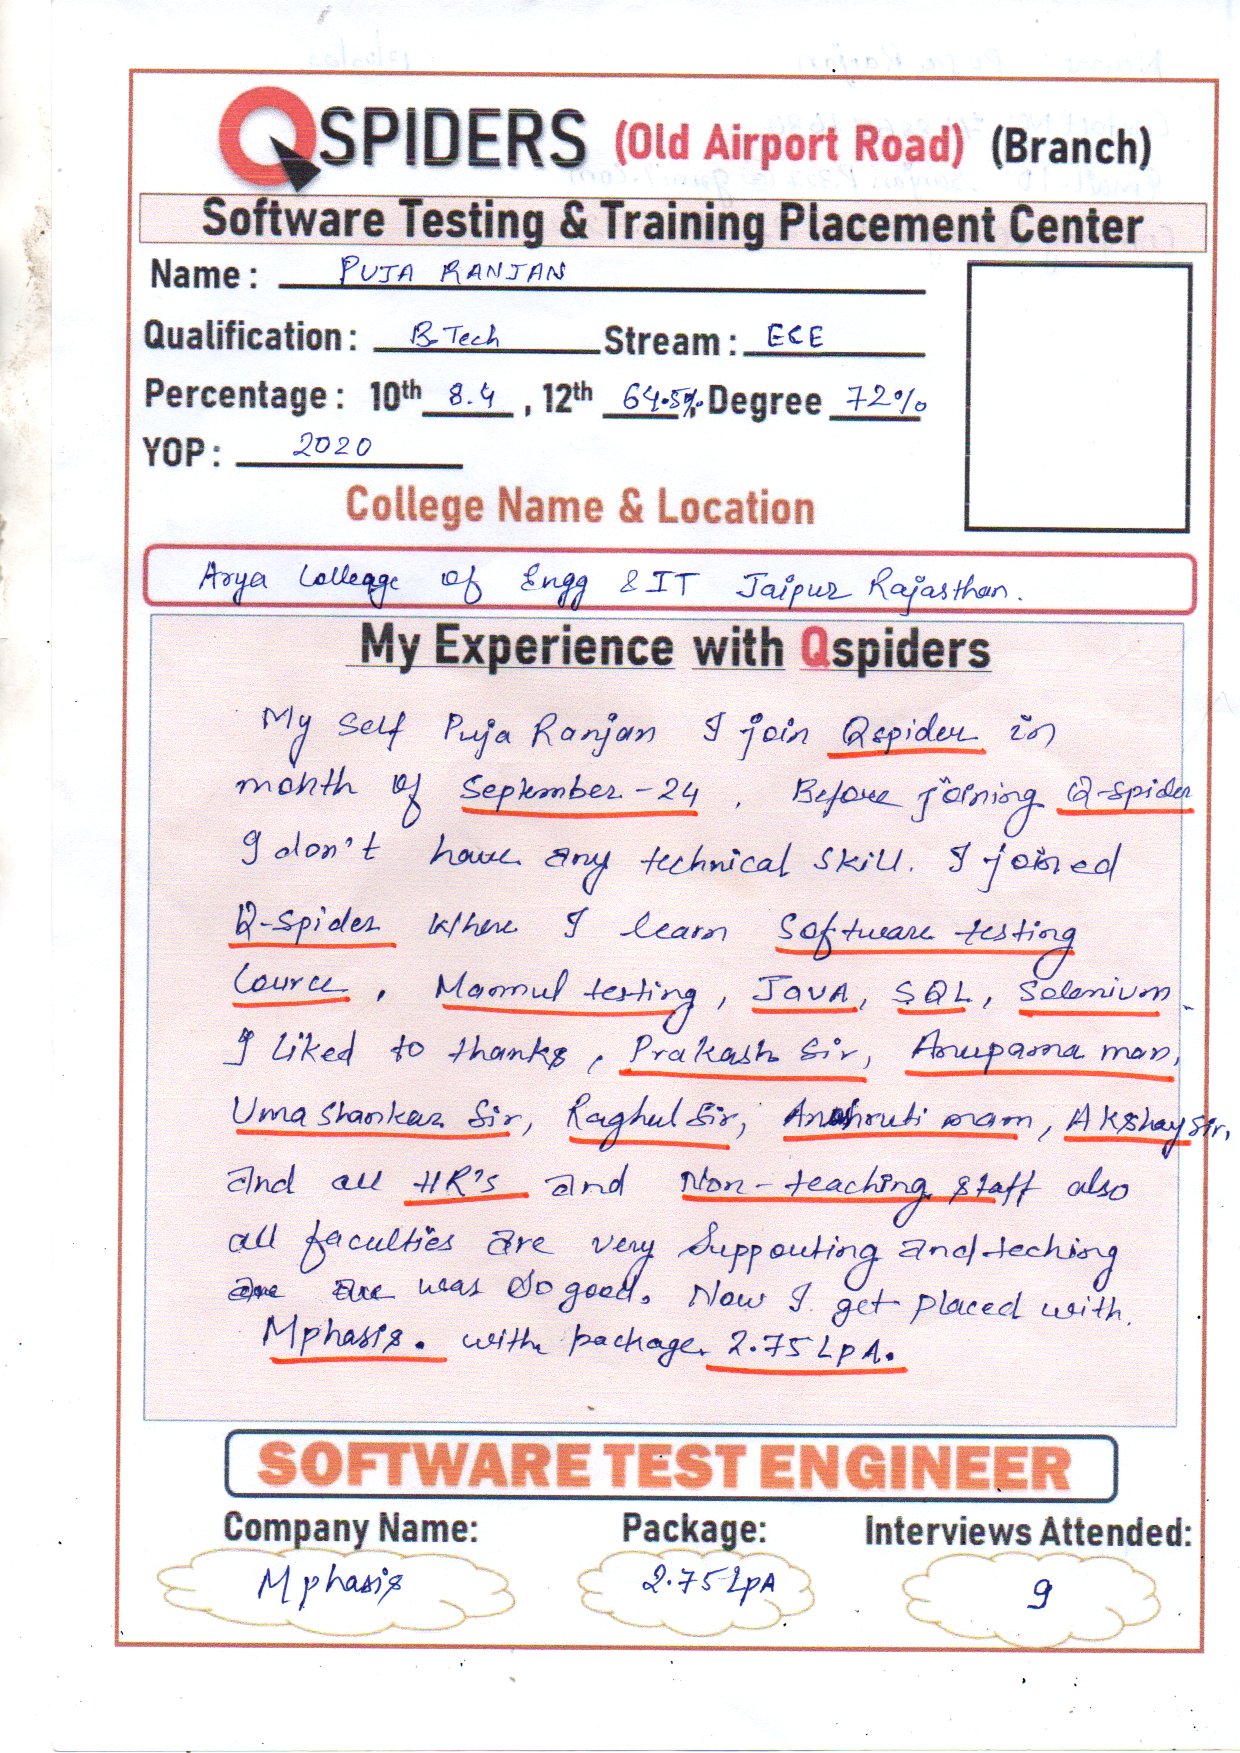 QSPIDERS (Old Airport Road) (Branch)
Software Testing & Training Placement Center
Name : PUJA RANJAN
Qualification : B.Tech Stream : ECE
Percentage : 10th 8.4 , 12th 64.5%, Degree 72%
YOP : 2020
College Name & Location
Arya Colleage of Engg & IT Jaipur Rajasthan.
My Experience with Qspiders
My Self Puja Ranjan I join Qspider in
month of September-24 . Before joining Q-spider
I don't have any technical skill. I joined
Q-spider where I learn Software testing
Cource , Mannul testing, JAVA, SQL, Selenium.
I liked to thanks, Prakash Sir, Anupama mam,
Uma Shankar Sir, Raghul Sir, mam, Akshay Sir,
and all HR's and Non-teaching staff also
all faculties are very Suppouting and teching
are are was so good. Now I get placed with.
Mphasis. with package 2.75 LPA.
SOFTWARE TEST ENGINEER
Company Name: Package: Interviews Attended:
Mphasis 2.75 LPA 9